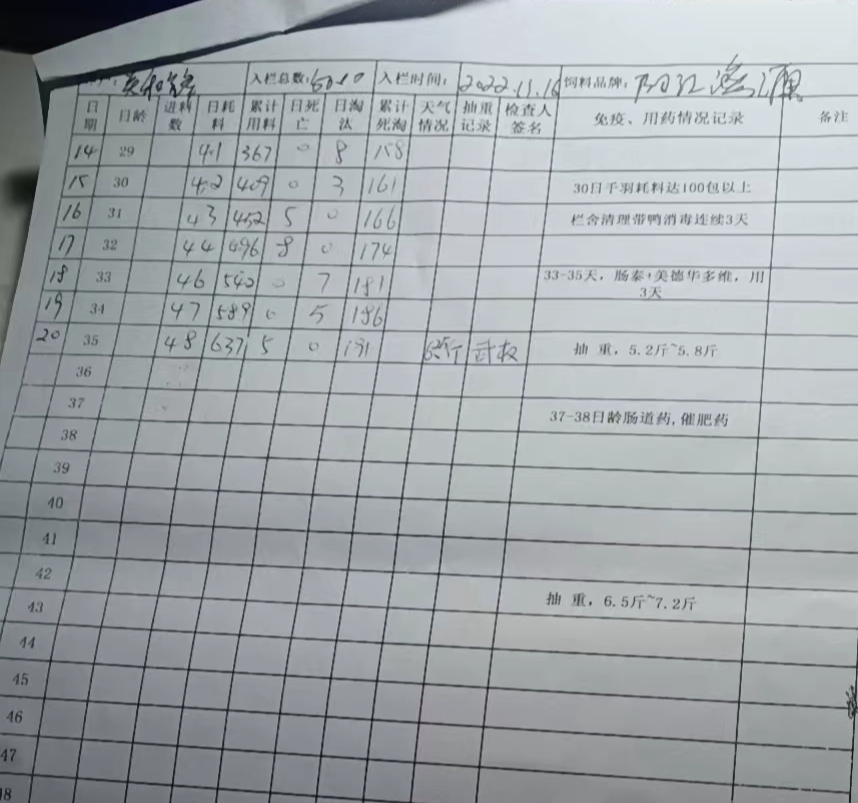 入栏总数: 入栏时间: 2022.11.16 饲料品牌: 阳江
日期 日龄 进料数 日耗料 累计用料 日死亡 日淘汰 累计死淘 天气情况 抽重记录 检查人签名 免疫、用药情况记录 备注
14 29 41 367 0 8 158
15 30 42 409 0 3 161 30日千羽耗料达100包以上
16 31 43 452 5 0 166 栏舍清理带鸭消毒连续3天
17 32 44 496 8 0 174
18 33 46 542 0 7 181 33-35天，肠泰+美德华多维，用3天
19 34 47 589 0 5 186
20 35 48 637 5 0 191 抽 重，5.2斤~5.8斤
36
37 37-38日龄肠道药,催肥药
38
39
40
41
42
43 抽 重，6.5斤~7.2斤
44
45
46
47